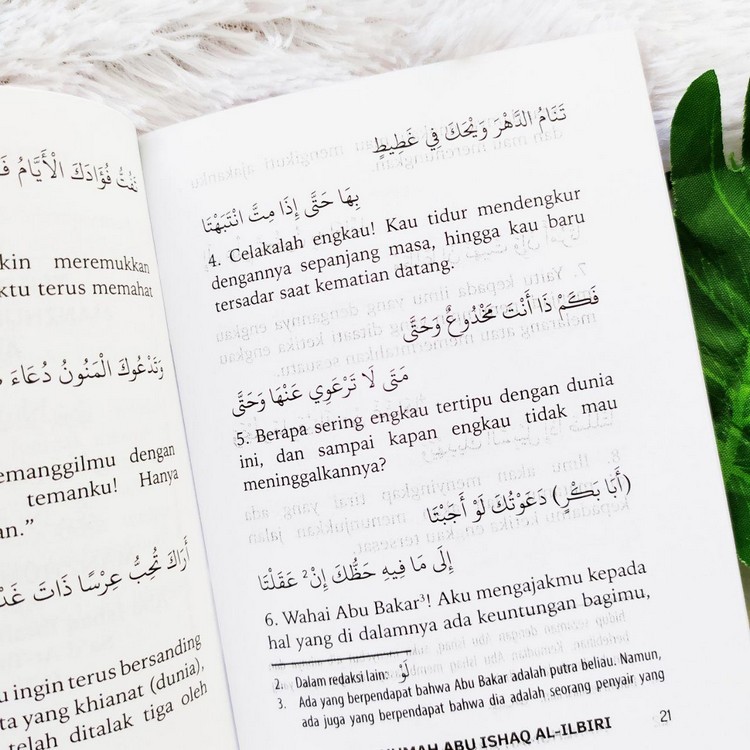 تَفُتُّ فُؤَادَكَ الْأَيَّامُ
kin meremukkan
ktu terus memahat
وَتَدْعُوكَ الْمَنُونُ دُعَاءَ
emanggilmu dengan
temanku! Hanya
an.”
أَرَاكَ تُحِبُّ عِرْسًا ذَاتَ
u ingin terus bersanding
ta yang khianat (dunia),
telah ditalak tiga oleh
تَنَامُ الدَّهْرَ وَيْحَكَ فِي غَطِيطٍ
بِهَا حَتَّى إِذَا مِتَّ انْتَبَهْتَا
4. Celakalah engkau! Kau tidur mendengkur
dengannya sepanjang masa, hingga kau baru
tersadar saat kematian datang.
فَكَمْ ذَا أَنْتَ مَخْدُوعٌ وَحَتَّى
مَتَى لَا تَرْعَوِي عَنْهَا وَحَتَّى
5. Berapa sering engkau tertipu dengan dunia
ini, dan sampai kapan engkau tidak mau
meninggalkannya?
(أَبَا بَكْرٍ) دَعَوْتُكَ لَوْ أَجَبْتَا
إِلَى مَا فِيهِ حَظُّكَ إِنْ² عَقَلْتَا
6. Wahai Abu Bakar³! Aku mengajakmu kepada
hal yang di dalamnya ada keuntungan bagimu,
2. Dalam redaksi lain: لَوْ
3. Ada yang berpendapat bahwa Abu Bakar adalah putra beliau. Namun,
ada juga yang berpendapat bahwa dia adalah seorang penyair yang
UMAH ABU ISHAQ AL-ILBIRI
21